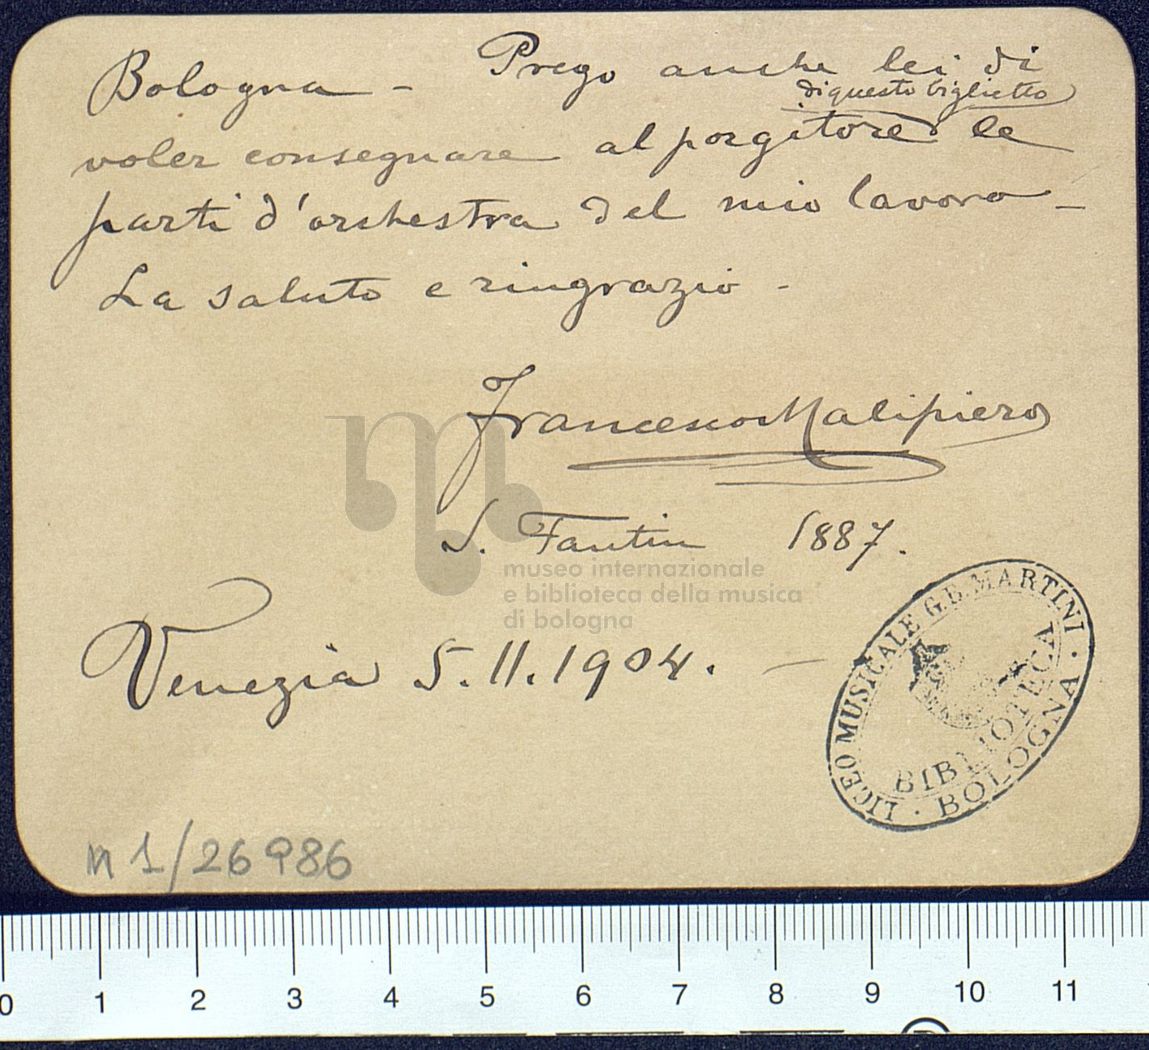 Bologna - Prego anche lei di
di questo biglietto
voler consegnare al porgitore le
parti d'orchestra del mio lavoro -
La saluto e ringrazio -
Francesco Malipiero
S. Fantin 1887.
museo internazionale
e biblioteca della musica
di bologna
Venezia 5.11.1904. -
LICEO MUSICALE G.B. MARTINI · BOLOGNA ·
BIBLIOTECA
n 1/26986
0 1 2 3 4 5 6 7 8 9 10 11